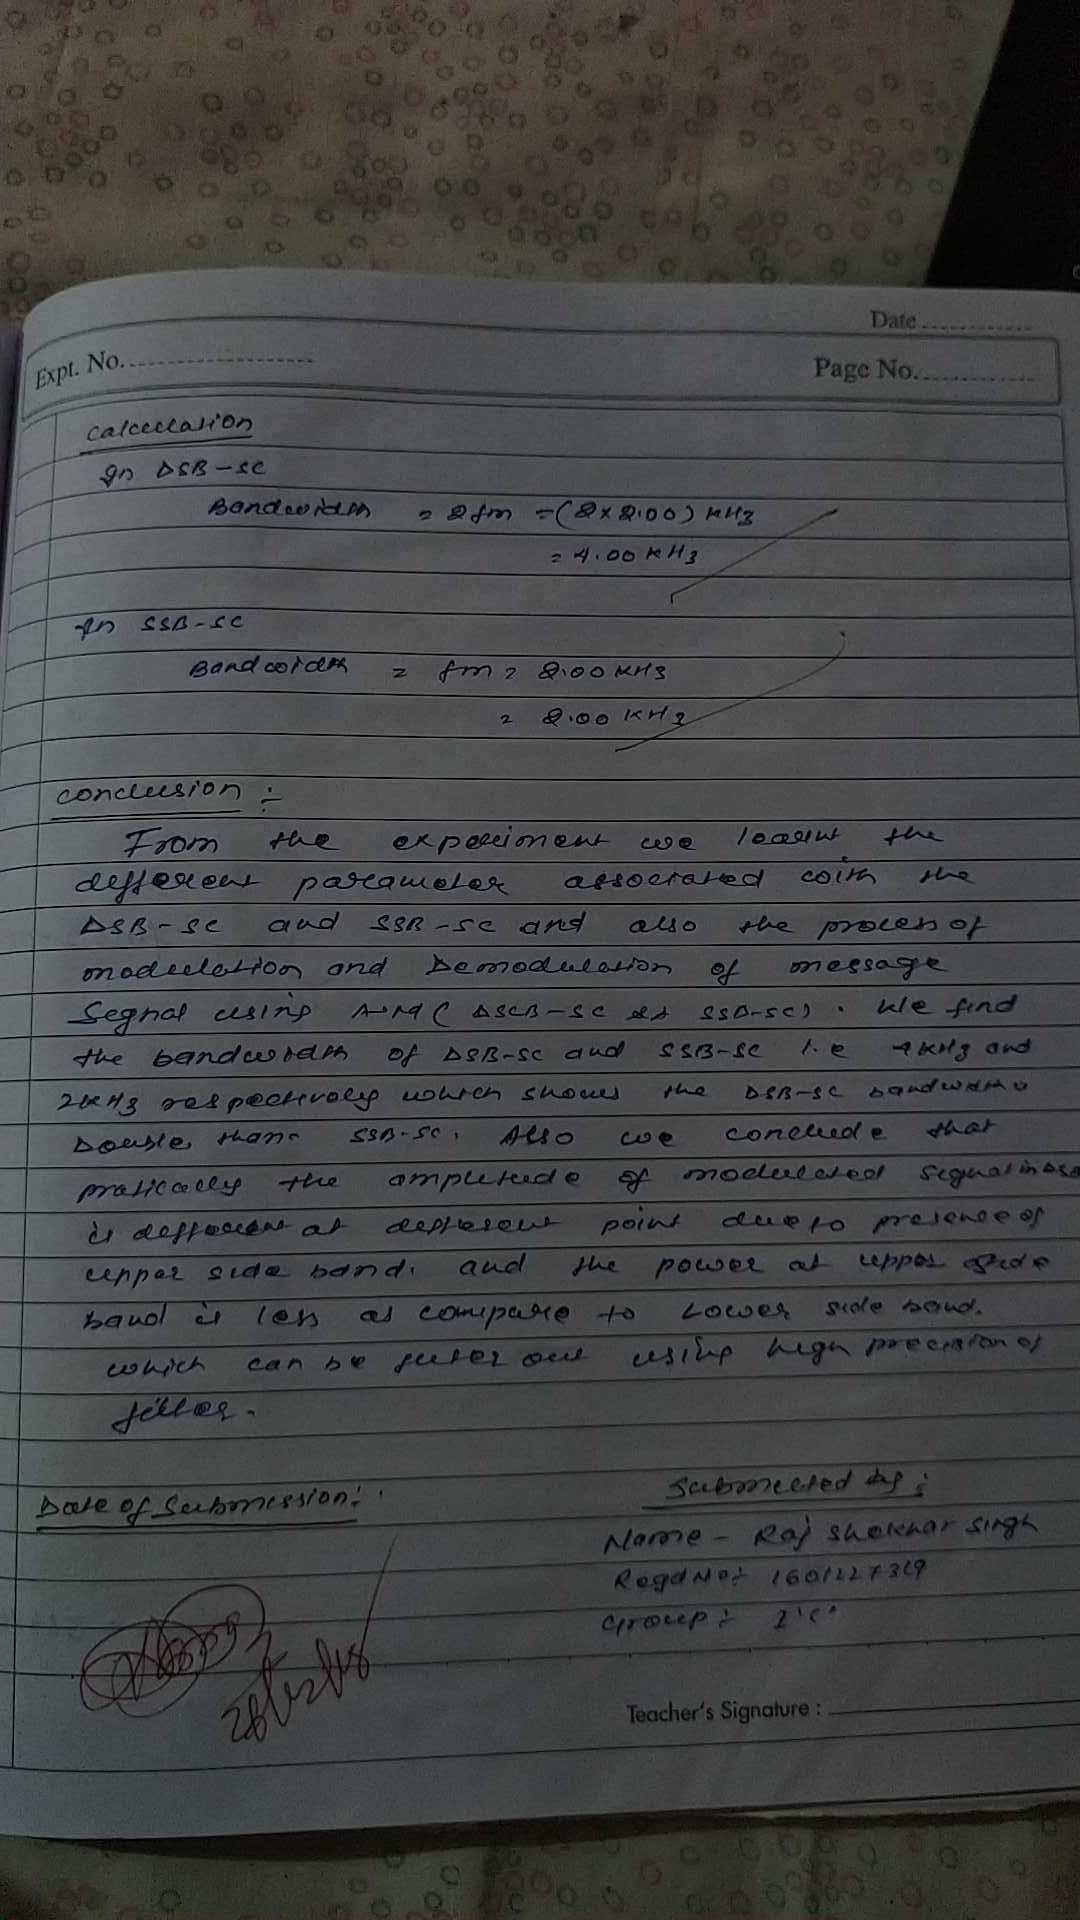 Date
Expt. No.
Page No.
Calculation
In DSB-SC
Bandwidth = 2fm = (2×2.00) KHz
= 4.00 KHz
In SSB-SC
Bandwidth = fm = 2.00 KHz
= 2.00 KHz
conclusion :-
From the experiment we learnt the
different parameter associated with the
DSB-SC and SSB-SC and also the process of
modulation and Demodulation of message
Signal using A.M ( DSB-SC & SSB-SC) . We find
the bandwidth of DSB-SC and SSB-SC i.e 4KHz and
2KHz respectively which shows the DSB-SC bandwidth
Double than SSB-SC. Also we conclude that
pratically the amplitude of modulated signal in
is different at different point due to presence of
upper side band. and the power at upper side
band is less as compare to Lower side band.
which can be filter out using high precision of
filter.
Date of Submission:-
Submitted by :
Name - Raj Shekhar Singh
Regd No:- 1601227319
Group :-
28/12/18
Teacher's Signature :